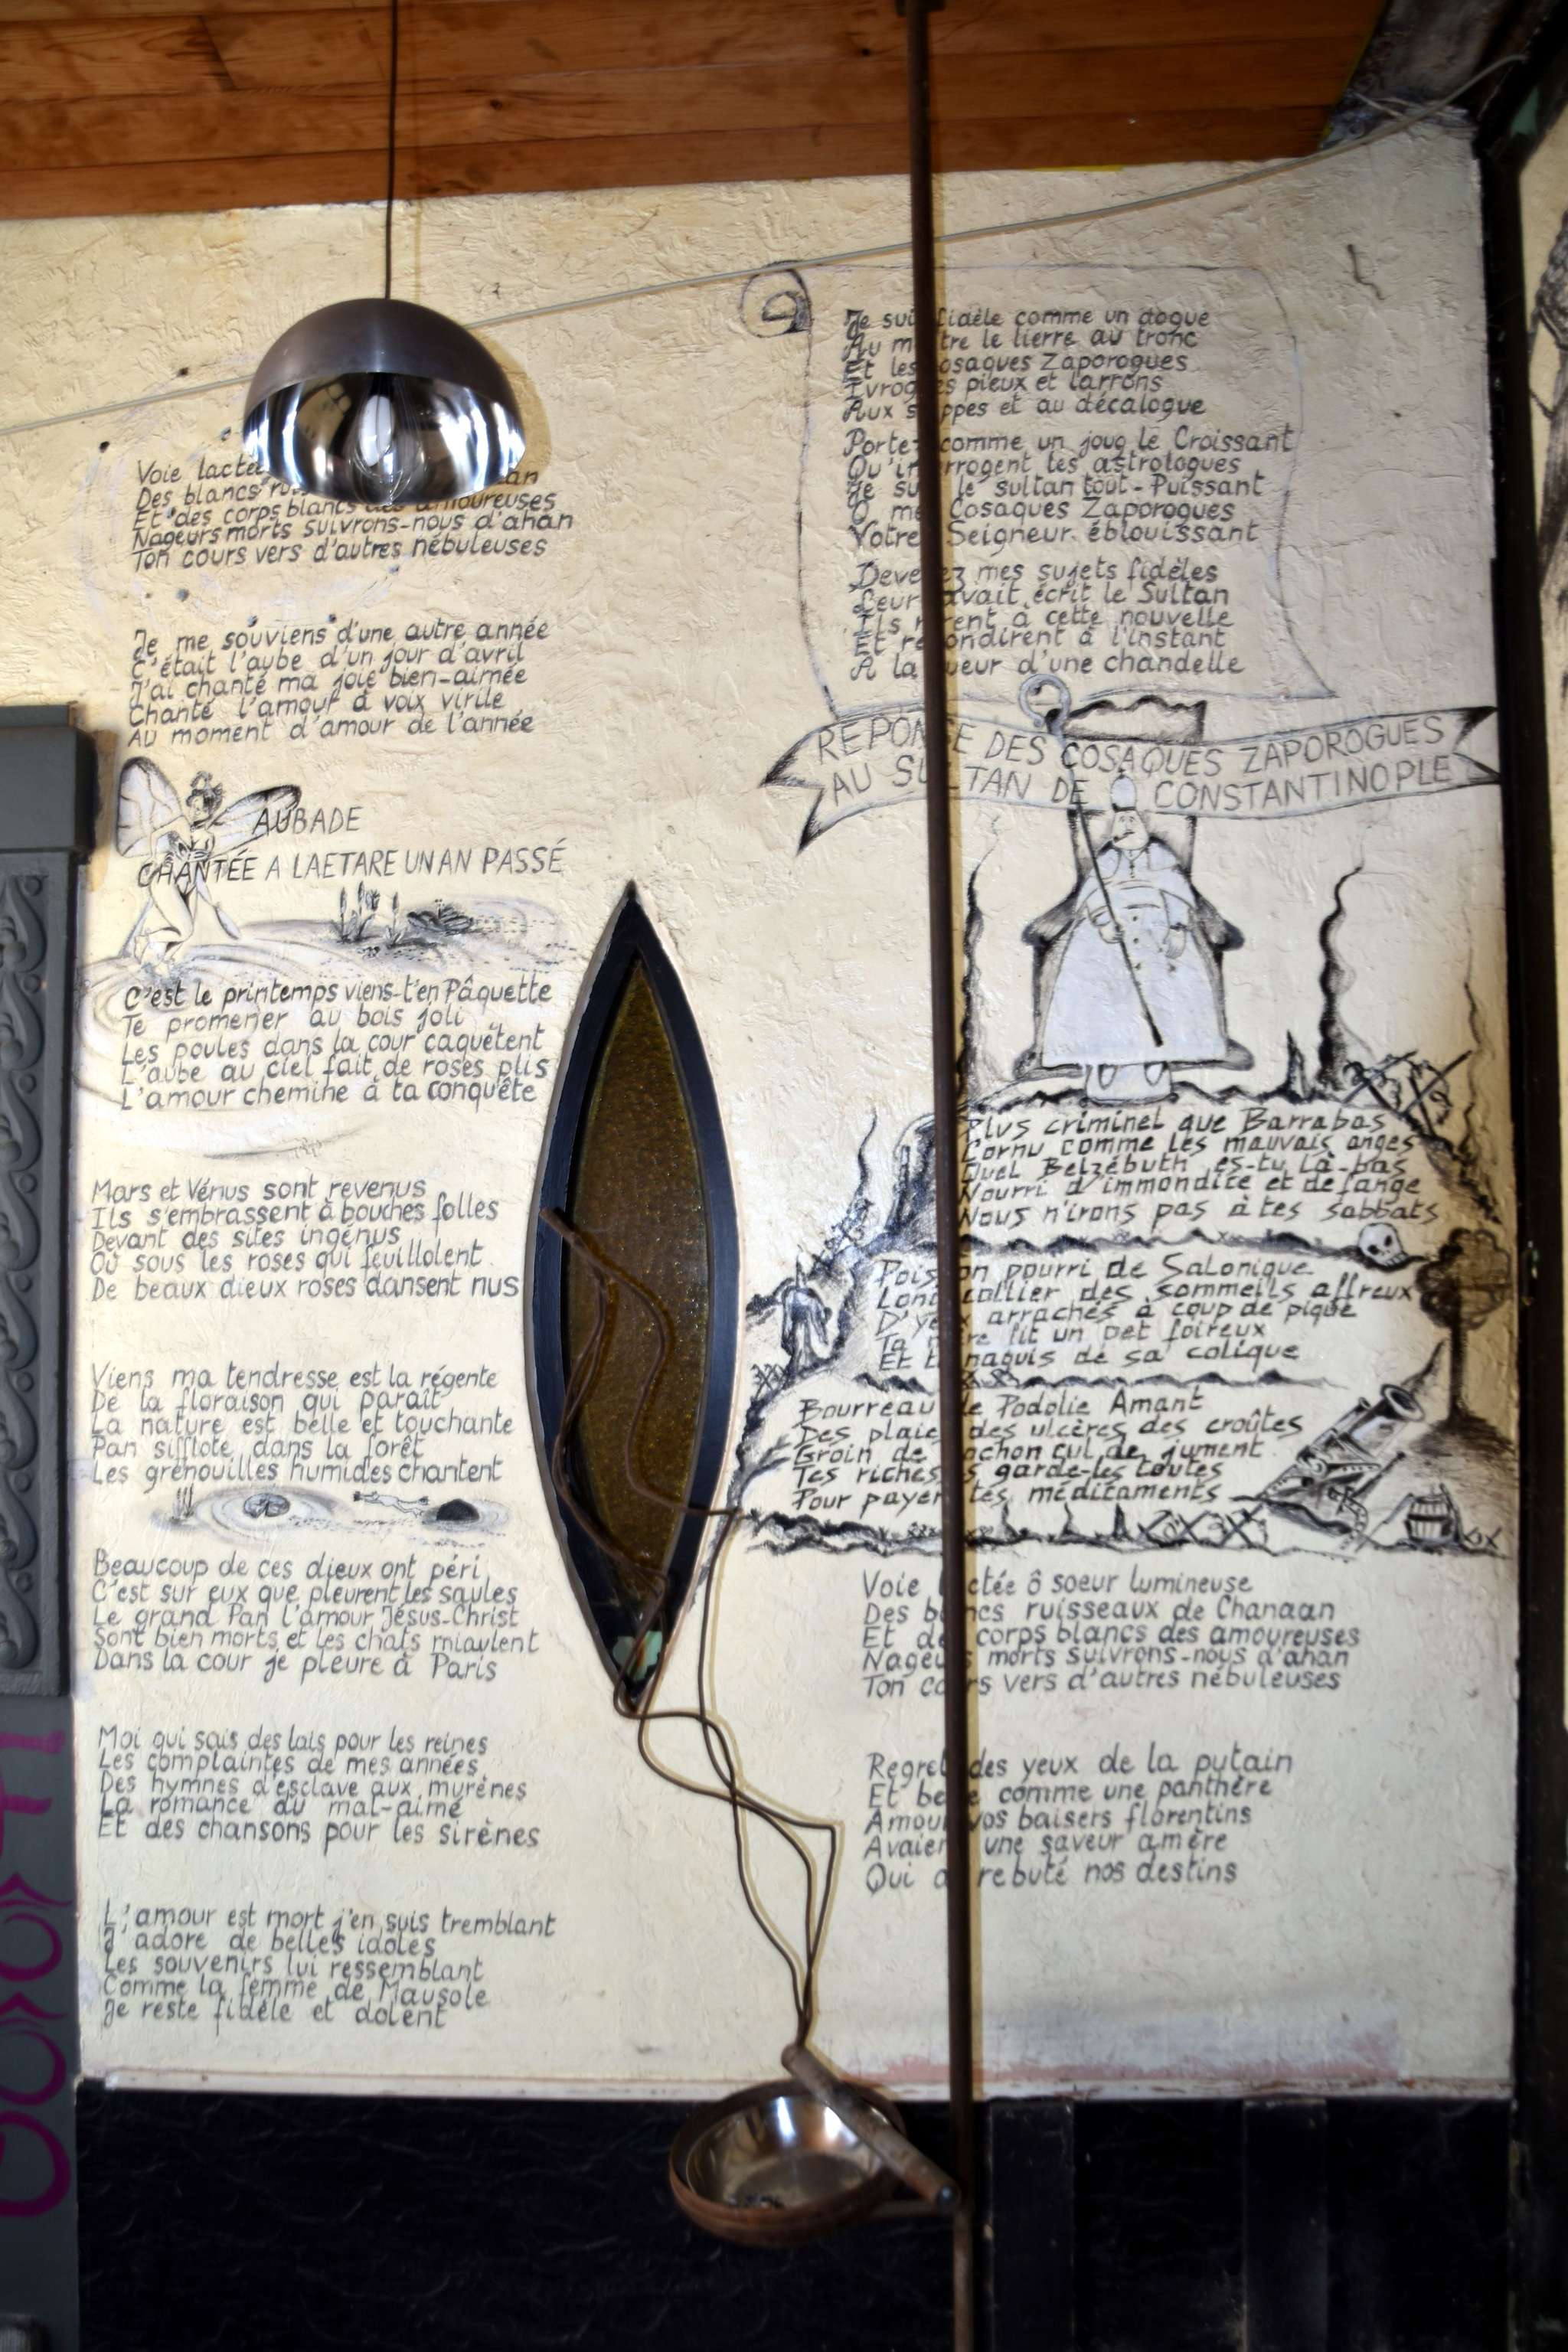 Voie lacté
Des blancs
Et des corps blancs des amoureuses
Nageurs morts suivrons-nous d'ahan
Ton cours vers d'autres nébuleuses
Je me souviens d'une autre année
C'était l'aube d'un jour d'avril
J'ai chanté ma joie bien-aimée
Chanté l'amour à voix virile
Au moment d'amour de l'année
AUBADE
CHANTÉE A LAETARE UN AN PASSÉ
C'est le printemps viens-t'en Pâquette
Te promener au bois joli
Les poules dans la cour caquètent
L'aube au ciel fait de roses plis
L'amour chemine à ta conquête
Mars et Vénus sont revenus
Ils s'embrassent à bouches folles
Devant des sites ingénus
Où sous les roses qui feuillolent
De beaux dieux roses dansent nus
Viens ma tendresse est la régente
De la floraison qui paraît
La nature est belle et touchante
Pan sifflote dans la forêt
Les grenouilles humides chantent
Beaucoup de ces dieux ont péri
C'est sur eux que pleurent les saules
Le grand Pan l'amour Jésus-Christ
Sont bien morts et les chats miaulent
Dans la cour je pleure à Paris
Moi qui sais des lais pour les reines
Les complaintes de mes années
Des hymnes d'esclave aux murènes
La romance du mal-aimé
Et des chansons pour les sirènes
L'amour est mort j'en suis tremblant
J'adore de belles idoles
Les souvenirs lui ressemblant
Comme la femme de Mausole
Je reste fidèle et dolent
Je suis fidèle comme un dogue
Au m tre le lierre au tronc
Et les osaques Zaporogues
Ivrog es pieux et larrons
Aux s ppes et au décalogue
Portez comme un joug le Croissant
Qu'in rrogent les astrologues
Je su le sultan tout-Puissant
O me Cosaques Zaporogues
Votre Seigneur éblouissant
Deve ez mes sujets fidèles
Leur avait écrit le Sultan
Ils r rent à cette nouvelle
Et ré ondirent à l'instant
A la ueur d'une chandelle
REPONSE DES COSAQUES ZAPOROGUES
AU SULTAN DE CONSTANTINOPLE
Plus criminel que Barrabas
Cornu comme les mauvais anges
Quel Belzébuth es-tu là-bas
Nourri d'immondice et de fange
Nous n'irons pas à tes sabbats
Pois on pourri de Salonique
Long collier des sommeils affreux
D'ye x arrachés à coup de pique
Ta re fit un pet foireux
Et t naquis de sa colique
Bourreau de Podolie Amant
Des plaies des ulcères des croûtes
Groin de ochon cul de jument
Tes riches s garde-les toutes
Pour payer tes médicaments
Voie l ctée ô soeur lumineuse
Des bl ncs ruisseaux de Chanaan
Et de corps blancs des amoureuses
Nageurs morts suivrons-nous d'ahan
Ton co rs vers d'autres nébuleuses
Regret des yeux de la putain
Et be e comme une panthère
Amour vos baisers florentins
Avaien une saveur amère
Qui a rebuté nos destins